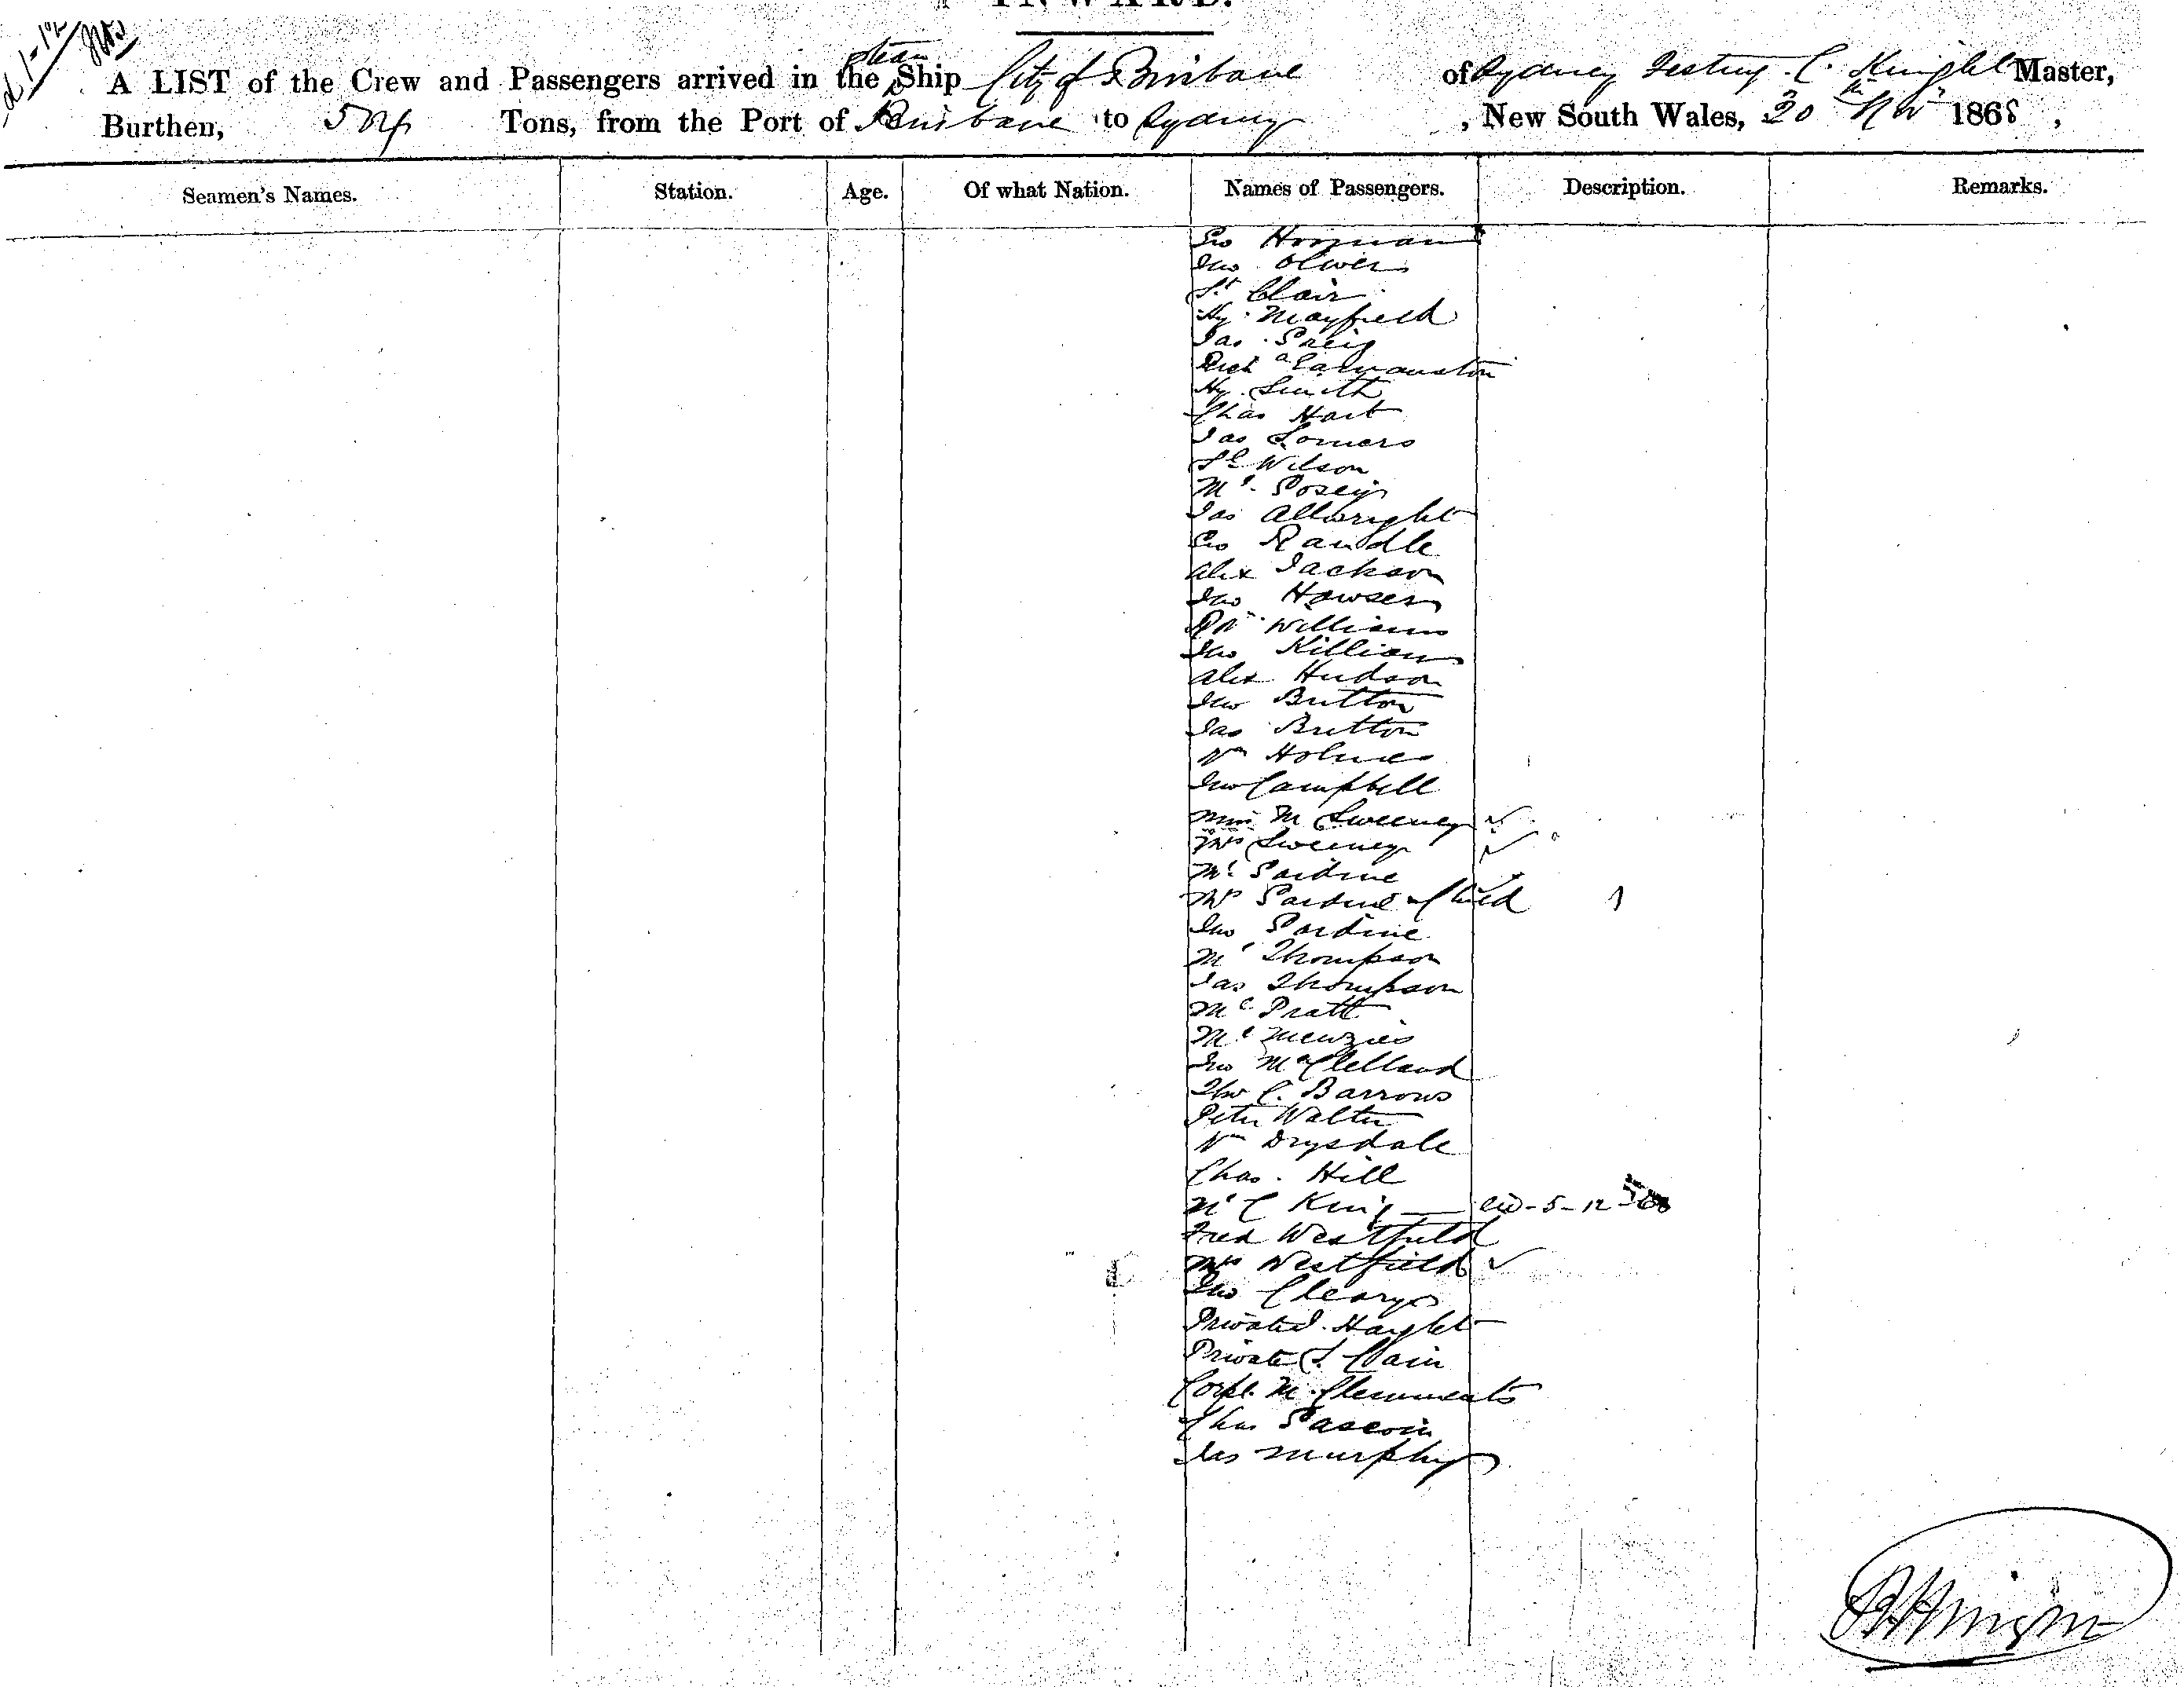 INWARD.
A LIST of the Crew and Passengers arrived in the Steam Ship City of Brisbane of Sydney Knight Master,
Burthen, 504 Tons, from the Port of Brisbane to Sydney, New South Wales, 30th Nov 1868,
Seamen's Names. Station. Age. Of what Nation. Names of Passengers. Description. Remarks.
Geo
Jno Oliver
St Clair
Hy. Mayfield
Jas. Greig
Hy. Smith
Chas Hart
Jas Somers
Sl Wilson
Mr.
Jas Allwright
Geo Randle
Alex Jackson
Jno Hawser
Williams
Jno Killian
Alex Hudson
Jno Britton
Jas Britton
Wm Holmes
Jno Campbell
Miss M Sweeney
Mrs Sweeney
Mr Sardine
Mrs Sardine & Child 1
Jno Sardine
Mr Thompson
Jas Thompson
Mr Pratt
Mr Menzies
Jno McClelland
Thos C. Barrows
Peter Walter
Wm Drysdale
Chas. Hill
Mr C King 5-12-68
Fred Westfield
Mrs Westfield
Jno Cleary
Private J.
Private S. Cain
Corpl. M. Clemments
Chas
Jas Murphy